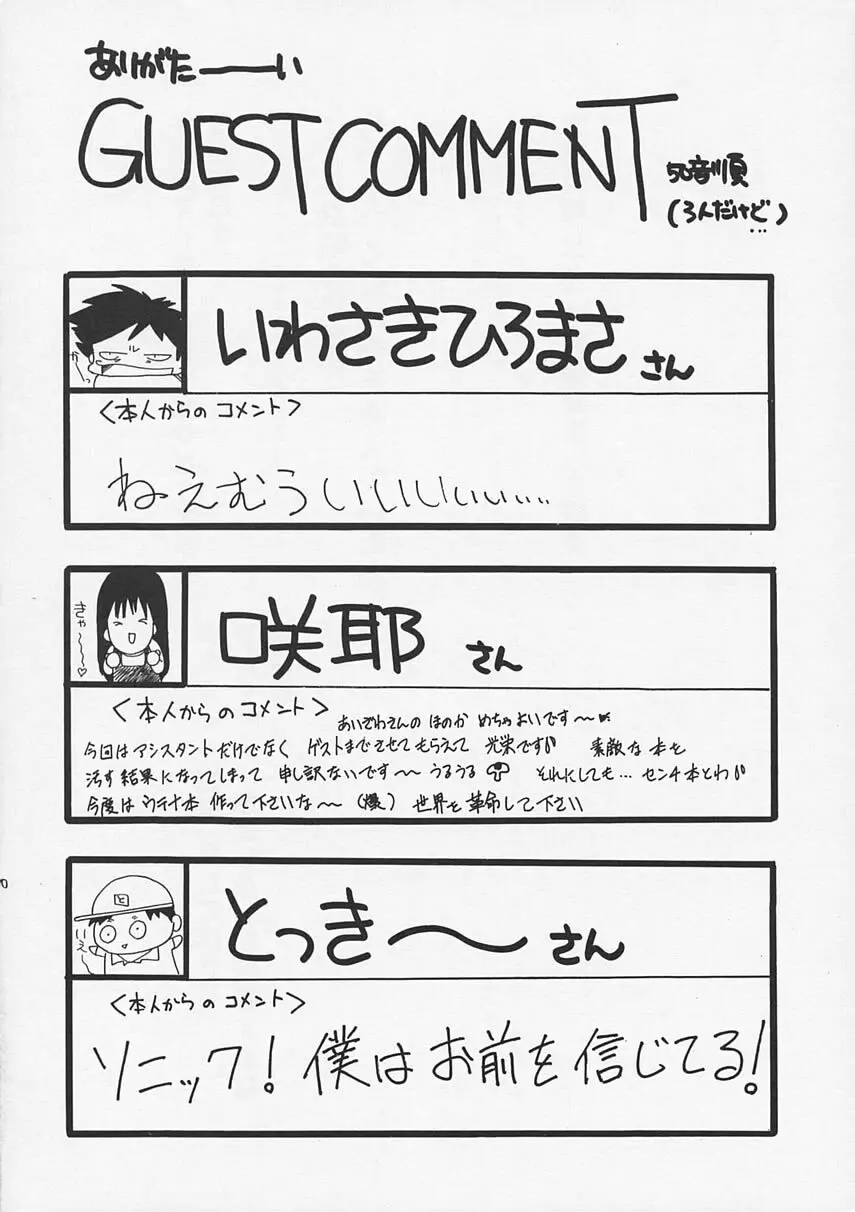 ありがたーーい
GUEST COMMENT
50音順
(3人だけど…)
いわさきひろまさ さん
<本人からの コメント>
ねえむういいいいぃぃ…‥
きゃ~~~♡
咲耶 さん
<本人からの コメント>
あいざわさんの ほのか めちゃよいです~
今回はアシスタントだけでなく ゲストまでさせてもらえて 光栄です♪ 素敵な本を
汚す結果になってしまって 申し訳ないです~ うるうる それにしても… センチ本とわ♪
今度は ウテナ本 作って下さいな~ (爆) 世界を革命して下さい
と
いえ
とっき~ さん
<本人からの コメント>
ソニック! 僕はお前を信じてる!